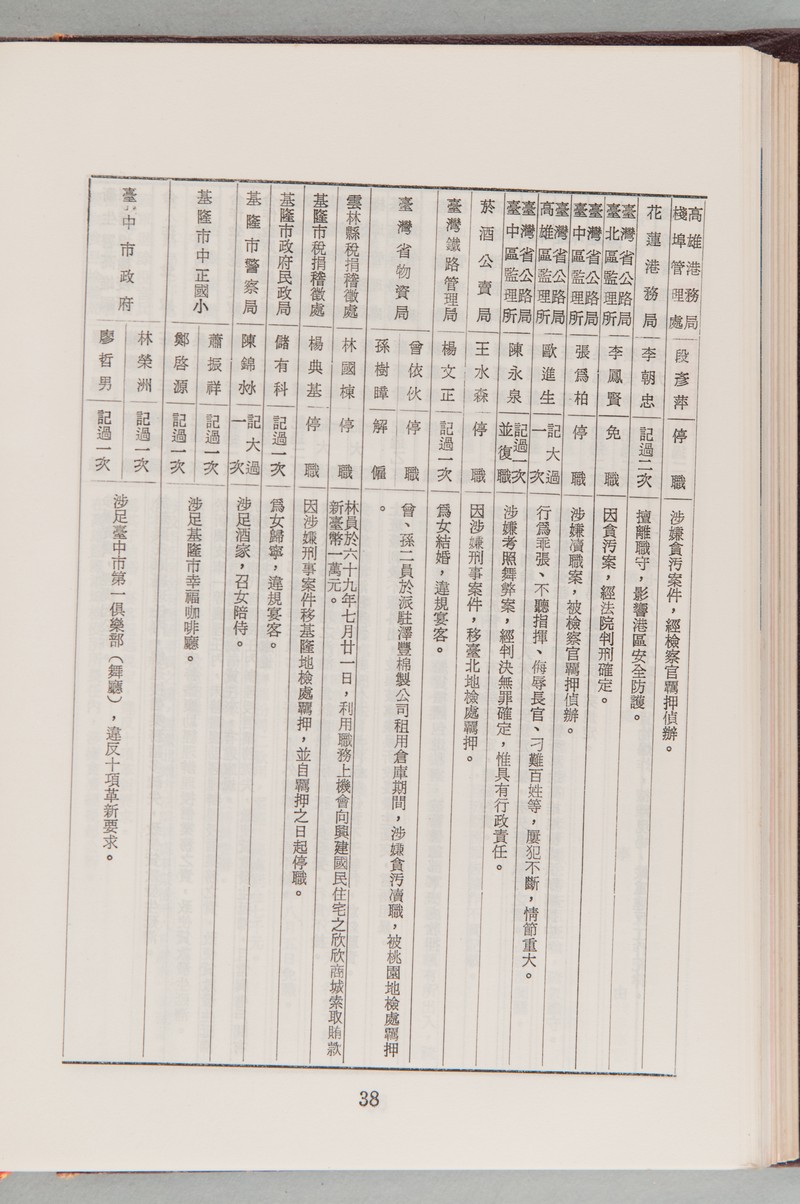 高雄港務局棧埠管理處 段彥萍 停職 涉嫌貪污案件，經檢察官羈押偵辦。
花蓮港務局 李朝忠 記過二次 擅離職守，影響港區安全防護。
臺灣省公路局臺北區監理所 李鳳賢 免職 因貪污案，經法院判刑確定。
臺灣省公路局臺中區監理所 張爲柏 停職 涉嫌瀆職案，被檢察官羈押偵辦。
臺灣省公路局高雄區監理所 歐進生 記大過一次 行爲乖張、不聽指揮、侮辱長官、刁難百姓等，屢犯不斷，情節重大。
臺灣省公路局臺中區監理所 陳永泉 記過一次並復職 涉嫌考照舞弊案，經判決無罪確定，惟具有行政責任。
菸酒公賣局 王水森 停職 因涉嫌刑事案件，移臺北地檢處羈押。
臺灣鐵路管理局 楊文正 記過一次 爲女結婚，違規宴客。
臺灣省物資局 曾依伙 停職 曾、孫二員於派駐澤豐棉製公司租用倉庫期間，涉嫌貪污瀆職，被桃園地檢處羈押
孫樹暲 解僱 。
雲林縣稅捐稽徵處 林國棟 停職 林員於六十九年七月廿一日，利用職務上機會向興建國民住宅之欣欣商城索取賄款
新臺幣一萬元。
基隆市稅捐稽徵處 楊典基 停職 因涉嫌刑事案件移基隆地檢處羈押，並自羈押之日起停職。
基隆市政府民政局 儲有科 記過一次 爲女歸寧，違規宴客。
基隆市警察局 陳錦沝 記大過一次 涉足酒家，召女陪侍。
基隆市中正國小 蕭振祥 記過一次 涉足基隆市幸福咖啡廳。
鄭啓源 記過一次
臺中市政府 林榮洲 記過一次 涉足臺中市第一俱樂部（舞廳），違反十項革新要求。
廖哲男 記過一次
38